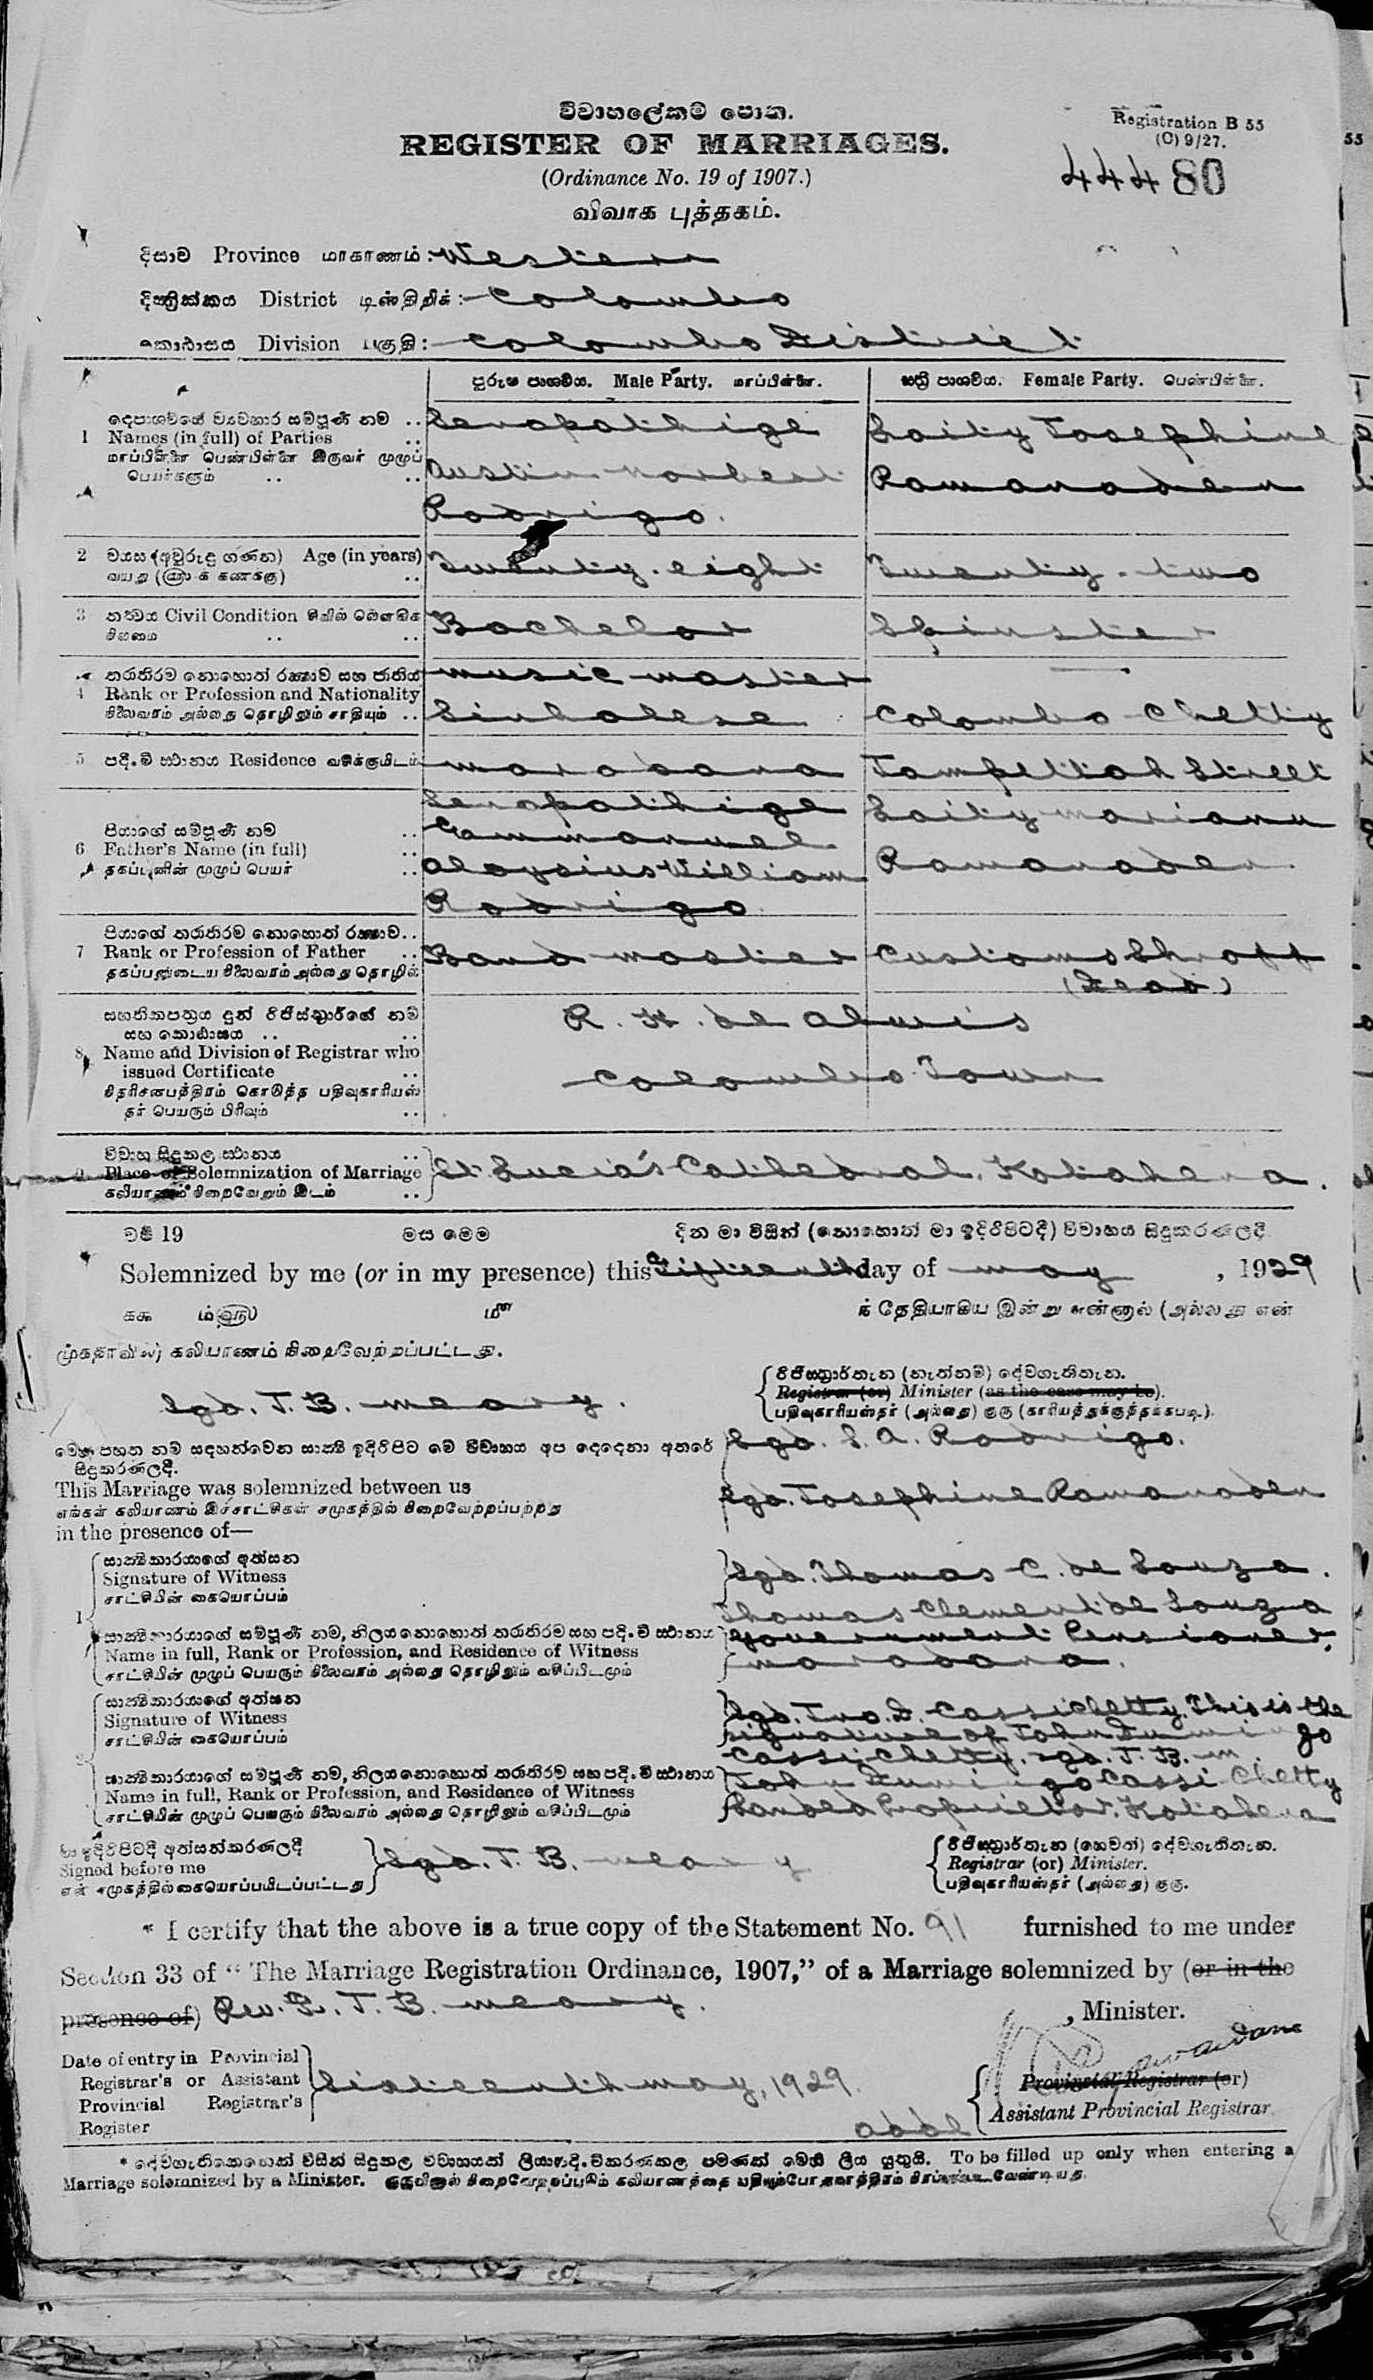 විවාහලේකම් පොත.
REGISTER OF MARRIAGES.
(Ordinance No. 19 of 1907.)
விவாக புத்தகம்.
Registration B 55
(C) 9/27.
44480
දිසාව Province மாகாணம் : Western
දිස්ත්‍රික්කය District டிஸ்திறிக் : Colombo
කොට්ඨාසය Division பகுதி : Colombo District
පුරුෂ පාර්ශවය. Male Party. மாப்பிள்ளை.
ස්ත්‍රී පාර්ශවය. Female Party. பெண்பிள்ளை.
1 දෙපාර්ශවයේ ව්‍යවහාර සම්පූර්ණ නම
Names (in full) of Parties
மாப்பிள்ளை பெண்பிள்ளை இருவர் முழுப் பெயர்களும்
Senapathige
Austin Norbert
Rodrigo.
Saity Josephine
Ramanaden
2 වයස (අවුරුදු ගණන) Age (in years)
வயது
Twenty-eight
Twenty-two
3 තත්වය Civil Condition சிவில் லௌகிக நிலைமை
Bachelor
Spinster
4 තරාතිරම නොහොත් රක්ෂාව සහ ජාතිය
Rank or Profession and Nationality
நிலைவரம் அல்லது தொழிலும் சாதியும்
Music Master
Sinhalese
—
Colombo Chetty
5 පදිංචි ස්ථානය Residence வசிக்குமிடம்
Maradana
Jampettah Street
6 පියාගේ සම්පූර්ණ නම
Father's Name (in full)
தகப்பனின் முழுப் பெயர்
Senapathige
Emmanuel
Aloysius William
Rodrigo
Saity Marianu
Ramanaden
7 පියාගේ තරාතිරම නොහොත් රක්ෂාව
Rank or Profession of Father
தகப்பனுடைய நிலைவரம் அல்லது தொழில்
Band Master
Customs Shroff
(Dead)
8 සහතිකපත්‍රය දුන් රෙජිස්ත්‍රාර්ගේ නම සහ කොට්ඨාසය
Name and Division of Registrar who
issued Certificate
R. H. de Alwis
Colombo Town
9 විවාහ සිදුකල ස්ථානය
Place of Solemnization of Marriage
கலியாணம் நிறைவேறும் இடம்
St. Lucia's Cathedral, Kotahena.
වර්ෂ 19 මස මෙම දින මා විසින් (නොහොත් මා ඉදිරිපිටදී) විවාහය සිදුකරණලදී
Solemnized by me (or in my presence) this Fifteenth day of May, 1929
முகதாவில்) கலியாணம் நிறைவேற்றப்பட்டது.
Sgd. T. B. Meary.
රෙජිස්ත්‍රාර්තැන (නැත්නම්) දේවගැතිතැන.
Registrar (or) Minister (as the case may be).
பதிவுகாரியஸ்தர் (அல்லது) குரு (காரியத்துக்குத்தக்கபடி.).
මෙහි පහත නම් සඳහන්වෙන සාක්ෂි ඉදිරිපිට මේ විවාහය අප දෙදෙනා අතරේ
සිදුකරණලදී.
This Marriage was solemnized between us
எங்கள் கலியாணம் இச்சாட்சிகள் சமுகத்தில் நிறைவேற்றப்பற்றது
in the presence of—
Sgd. S. A. Rodrigo.
Sgd. Josephine Ramanaden
1 සාක්ෂිකාරයාගේ අත්සන
Signature of Witness
சாட்சியின் கையொப்பம்
Sgd. Thomas C. de Souza.
සාක්ෂිකාරයාගේ සම්පූර්ණ නම, නිලය නොහොත් තරාතිරම සහ පදිංචි ස්ථානය
Name in full, Rank or Profession, and Residence of Witness
சாட்சியின் முழுப் பெயரும் நிலைவரம் அல்லது தொழிலும் வசிப்பிடமும்
Thomas Clement de Souza
Government Pensioner,
Maradana.
2 සාක්ෂිකාරයාගේ අත්සන
Signature of Witness
சாட்சியின் கையொப்பம்
Sgd. Jno. D. Cassichetty. This is the
signature of John Dumingo
Cassichetty. Sgd. T. B. M.
සාක්ෂිකාරයාගේ සම්පූර්ණ නම, නිලය නොහොත් තරාතිරම සහ පදිංචි ස්ථානය
Name in full, Rank or Profession, and Residence of Witness
சாட்சியின் முழுப் பெயரும் நிலைவரம் அல்லது தொழிலும் வசிப்பிடமும்
John Dumingo Cassi Chetty
Landed Proprietor, Kotahena
මා ඉදිරිපිටදී අත්සන්කරණලදී
Signed before me
என் சமுகத்தில் கையொப்பமிடப்பட்டது
Sgd. T. B. Meary
රෙජිස්ත්‍රාර්තැන (හෙවත්) දේවගැතිතැන.
Registrar (or) Minister.
பதிவுகாரியஸ்தர் (அல்லது) குரு.
* I certify that the above is a true copy of the Statement No. 91 furnished to me under
Section 33 of "The Marriage Registration Ordinance, 1907," of a Marriage solemnized by (or in the
presence of) Rev. Fr. T. B. Meary. , Minister.
Date of entry in Provincial
Registrar's or Assistant
Provincial Registrar's
Register
Sixteenth May, 1929.
Provincial Registrar (or)
Assistant Provincial Registrar
* දේවගැතිකෙනෙක් විසින් සිදුකල විවාහයක් ලියාපදිංචිකරණකල පමණක් මෙහි ලිය යුතුයි. To be filled up only when entering a
Marriage solemnized by a Minister.